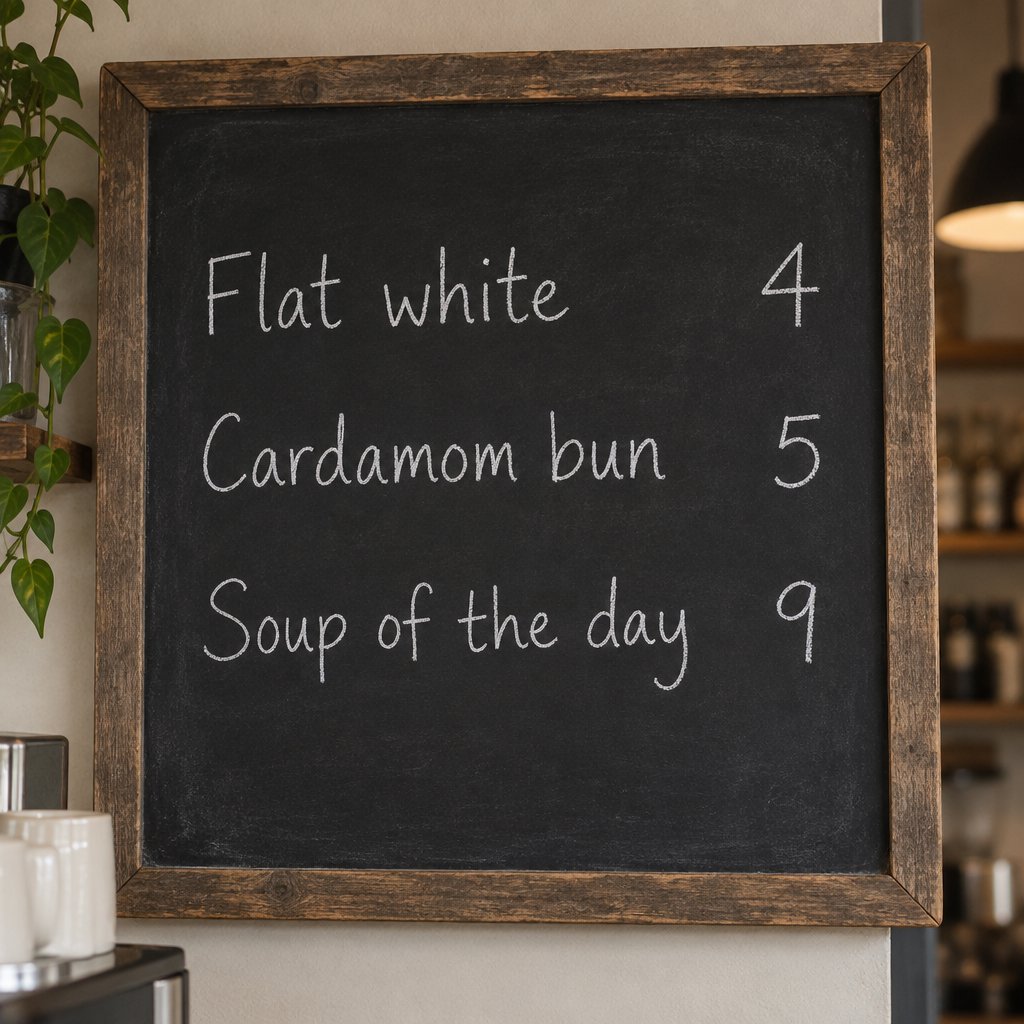 Flat white 4
Cardamom bun 5
Soup of the day 9